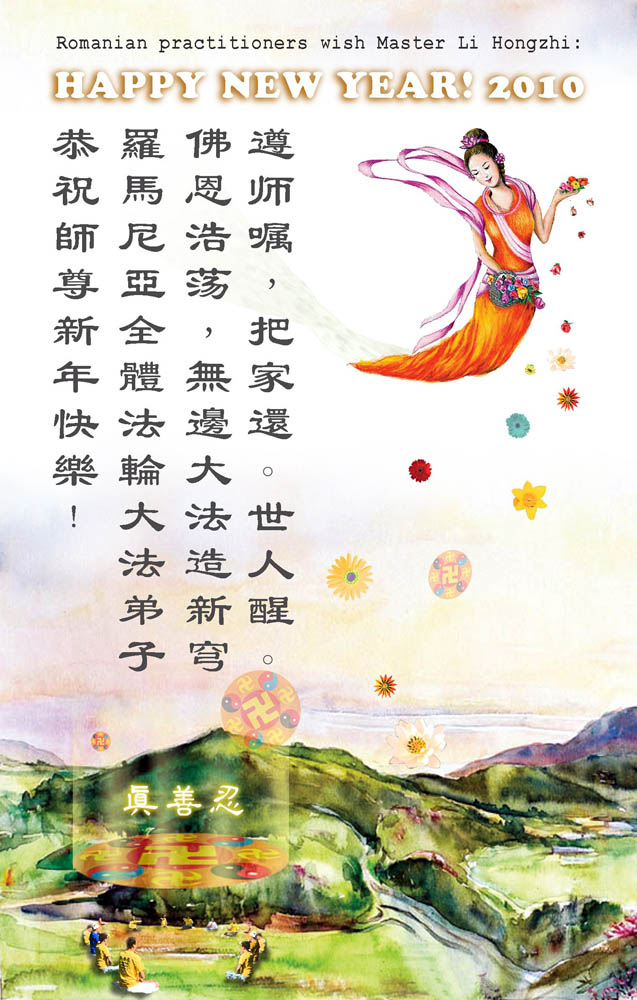 Romanian practitioners wish Master Li Hongzhi:
HAPPY NEW YEAR! 2010
遵师嘱，把家還。世人醒。
佛恩浩荡，無邊大法造新穹
羅馬尼亞全體法輪大法弟子
恭祝師尊新年快樂！
眞善忍